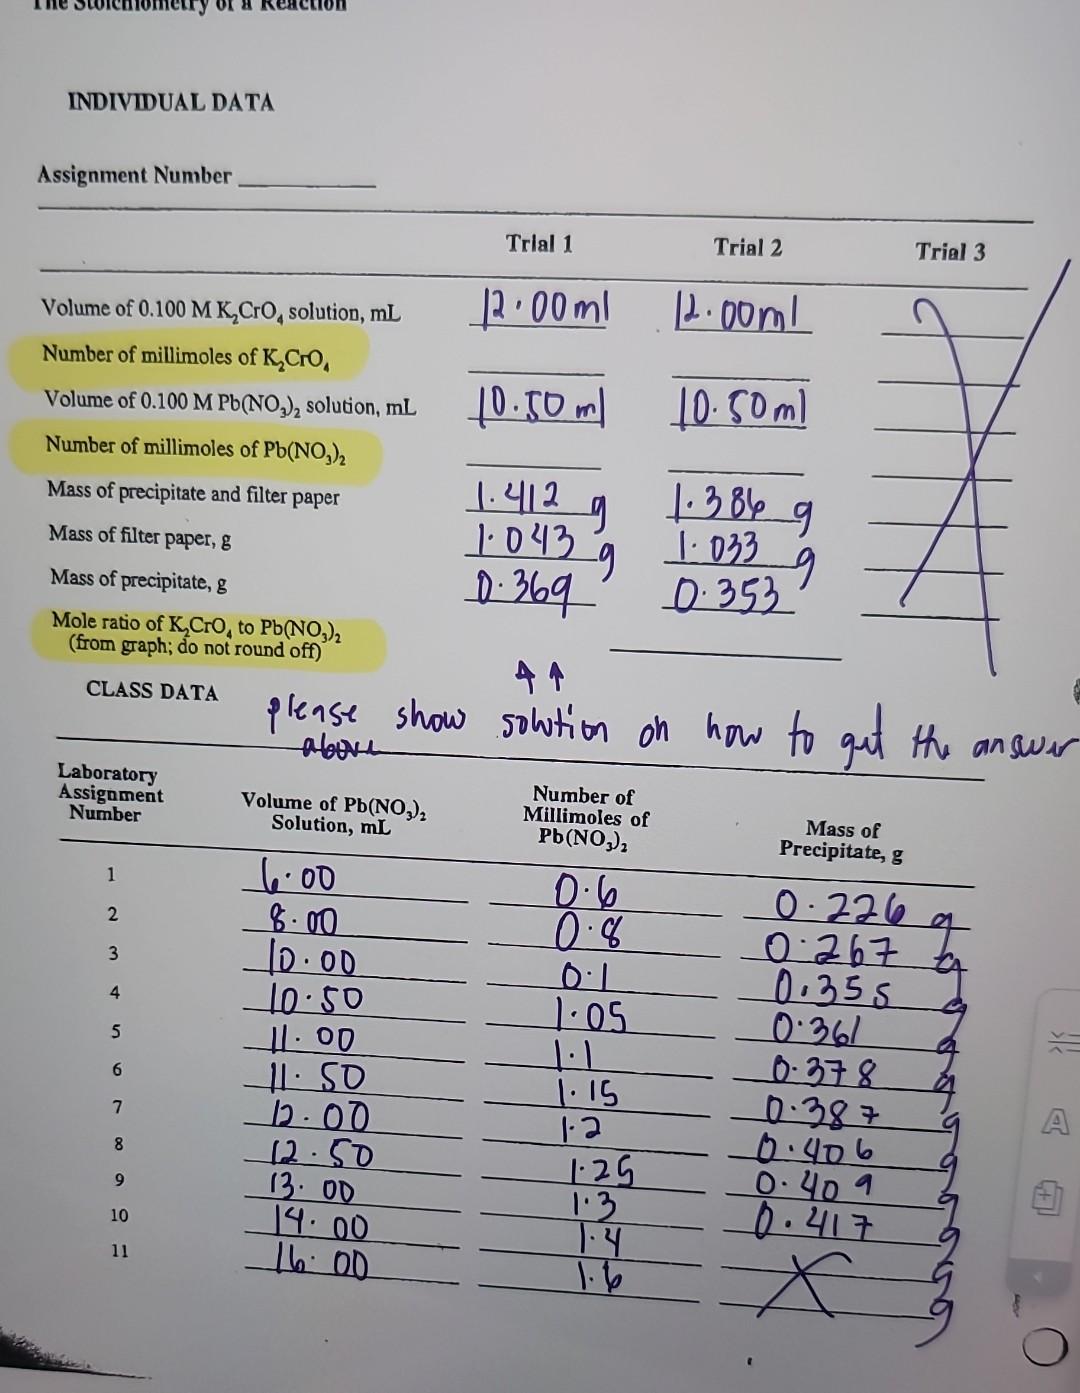 The Stoichiometry of a Reaction
INDIVIDUAL DATA
Assignment Number
Trial 1 Trial 2 Trial 3
Volume of 0.100 M K₂CrO₄ solution, mL 12.00 ml 12.00 ml
Number of millimoles of K₂CrO₄
Volume of 0.100 M Pb(NO₃)₂ solution, mL 10.50 ml 10.50 ml
Number of millimoles of Pb(NO₃)₂
Mass of precipitate and filter paper 1.412 g 1.386 g
Mass of filter paper, g 1.043 g 1.033 g
Mass of precipitate, g 0.369 0.353
Mole ratio of K₂CrO₄ to Pb(NO₃)₂
(from graph; do not round off)
CLASS DATA
please show solution on how to get the answer
above
Laboratory
Assignment
Number
Volume of Pb(NO₃)₂
Solution, mL
Number of
Millimoles of
Pb(NO₃)₂
Mass of
Precipitate, g
1 6.00 0.6 0.226 g
2 8.00 0.8 0.267 g
3 10.00 0.1 0.355 g
4 10.50 1.05 0.361 g
5 11.00 1.1 0.378 g
6 11.50 1.15 0.387 g
7 12.00 1.2 0.406 g
8 12.50 1.25 0.409 g
9 13.00 1.3 0.417 g
10 14.00 1.4 g
11 16.00 1.6 g
A